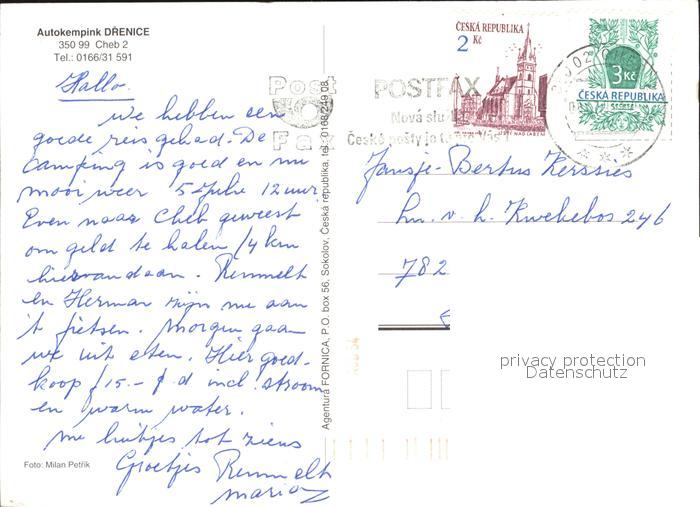 Autokempink DŘENICE
350 99 Cheb 2
Tel.: 0166/31 591
Hallo.
We hebben een
goede reis gehad. De
camping is goed en nu
mooi weer 5 Julie 12 uur.
Even naar Cheb geweest
om geld te halen 14 km
hiervandaan. Remmelt
en Herman zijn nu aan
't fietsen. Morgen gaan
we uit eten. Hier goed-
koop f 15.- p d incl. stroom
en warm water.
nu luitjes tot ziens
Groetjes Remmelt
Maria
Foto: Milan Petřik
Agentura FORNICA, P.O. box 56, Sokolov, Česká republika, tel.: 0168/249 08
Post
Fa
POSTFAX
Nová slu
České pošty je t
ČESKÁ REPUBLIKA
2 Kč
NAD LABEM
3 Kč
ČESKÁ REPUBLIKA
SECESE
Jansje-Bertus Kerssies
Ln. v. h. Kwekebos 246
782
privacy protection
Datenschutz